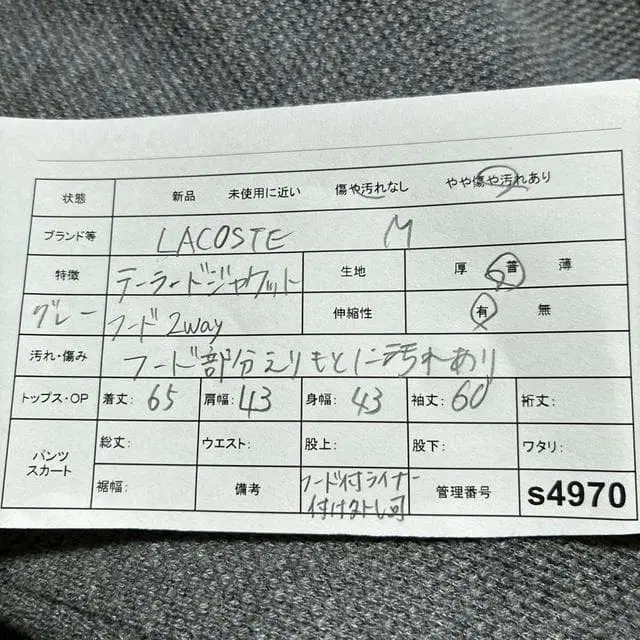 状態 新品 未使用に近い 傷や汚れなし やや傷や汚れあり
ブランド等 LACOSTE M
特徴 テーラードジャケット 生地 厚 普 薄
グレー フード2way 伸縮性 有 無
汚れ・傷み フード部分えりもとに汚れあり
トップス・OP 着丈: 65 肩幅: 43 身幅: 43 袖丈: 60 裄丈:
パンツ スカート 総丈: ウエスト: 股上: 股下: ワタリ:
裾幅: 備考 フード付ライナー 付け外し可 管理番号 s4970